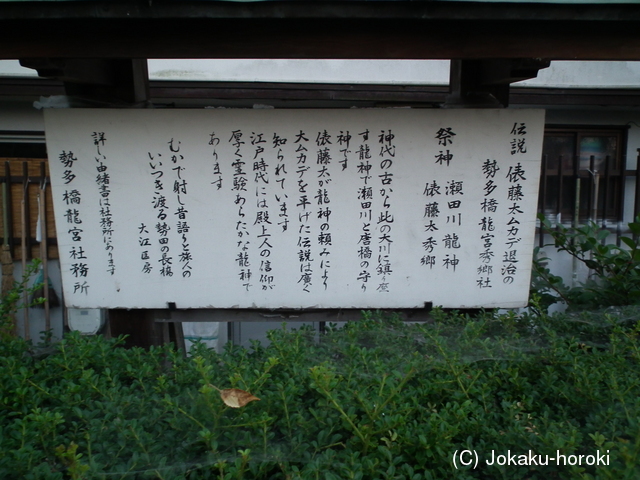 伝説 俵藤太ムカデ退治の
勢多橋龍宮秀郷社
祭神 瀬田川龍神
俵藤太秀郷
神代の古から此の大川に鎮り座
す龍神で瀬田川と唐橋の守り
神です
俵藤太が龍神の頼みにより
大ムカデを平げた伝説は広く
知られています
江戸時代には殿上人の信仰が
厚く霊験あらたかな龍神で
あります
むかで射し昔語りと旅人の
いつき渡る勢田の長橋
大江匡房
詳しい由緒書は社務所にあります
勢多橋龍宮社務所
(C) Jokaku-horoki